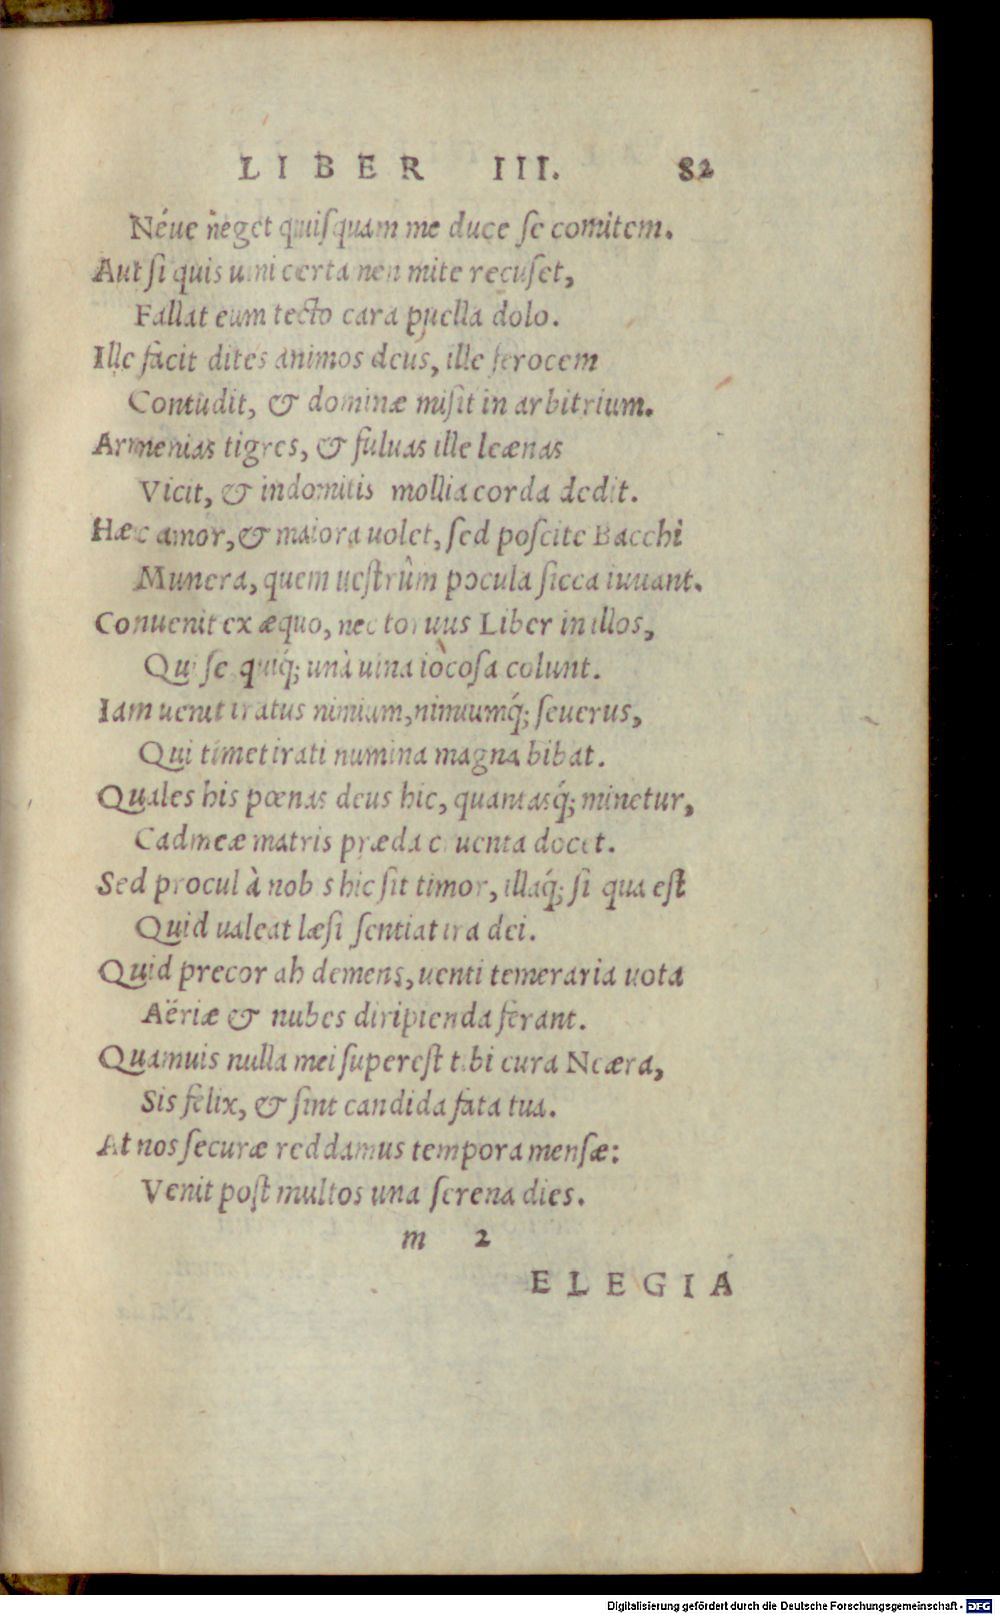 LIBER III. 82
Néue neget quisquam me duce se comitem.
Aut si quis uini certamen mite recuset,
Fallat eum tecto cara puella dolo.
Ille facit dites animos deus, ille ferocem
Contudit, & dominæ misit in arbitrium.
Armenias tigres, & fuluas ille leænas
Vicit, & indomitis mollia corda dedit.
Hæc amor, & maiora uolet, sed poscite Bacchi
Munera, quem uestrûm pocula sicca iuuant.
Conuenit ex æquo, nec toruus Liber in illos,
Qui se quiq́; unà uina iocosa colunt.
Iam uenit iratus nimium, nimiumq́; seuerus,
Qui timet irati numina magna bibat.
Quales his pœnas deus hic, quantasq́; minetur,
Cadmeæ matris præda cruenta docet.
Sed procul à nobis hic sit timor, illaq́; si qua est
Quid ualeat læsi sentiat ira dei.
Quid precor ah demens, uenti temeraria uota
Aëriæ & nubes diripienda ferant.
Quamuis nulla mei superest tibi cura Neæra,
Sis felix, & sint candida fata tua.
At nos securæ reddamus tempora mensæ:
Venit post multos una serena dies.
m 2
ELEGIA
Digitalisierung gefördert durch die Deutsche Forschungsgemeinschaft - DFG